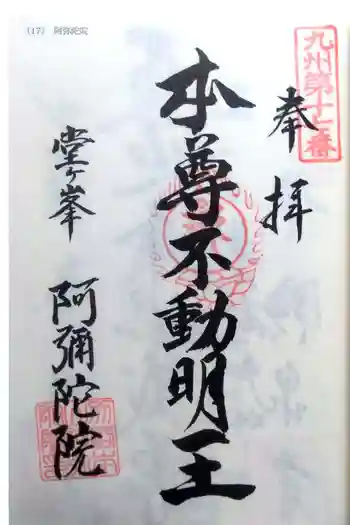 (17) 阿弥陀院
九州第十七番
奉拝
本尊不動明王
堂ヶ峯
阿彌陀院